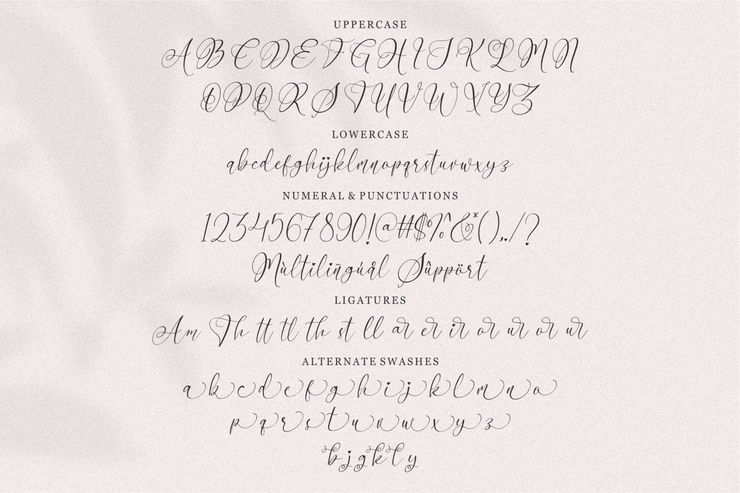 UPPERCASE
A B C D E F G H I J K L M N
O P Q R S T U V W X Y Z
LOWERCASE
abcdefghijklmnopqrstuvwxyz
NUMERAL & PUNCTUATIONS
1234567890!@#$%^&*(),./?
Mùltilingúål Sûppört
LIGATURES
Am Th tt tl th st ll ar er ir or ur or ur
ALTERNATE SWASHES
a b c d e f g h i j k l m n o
p q r s t u v w x y z
b j g k l y